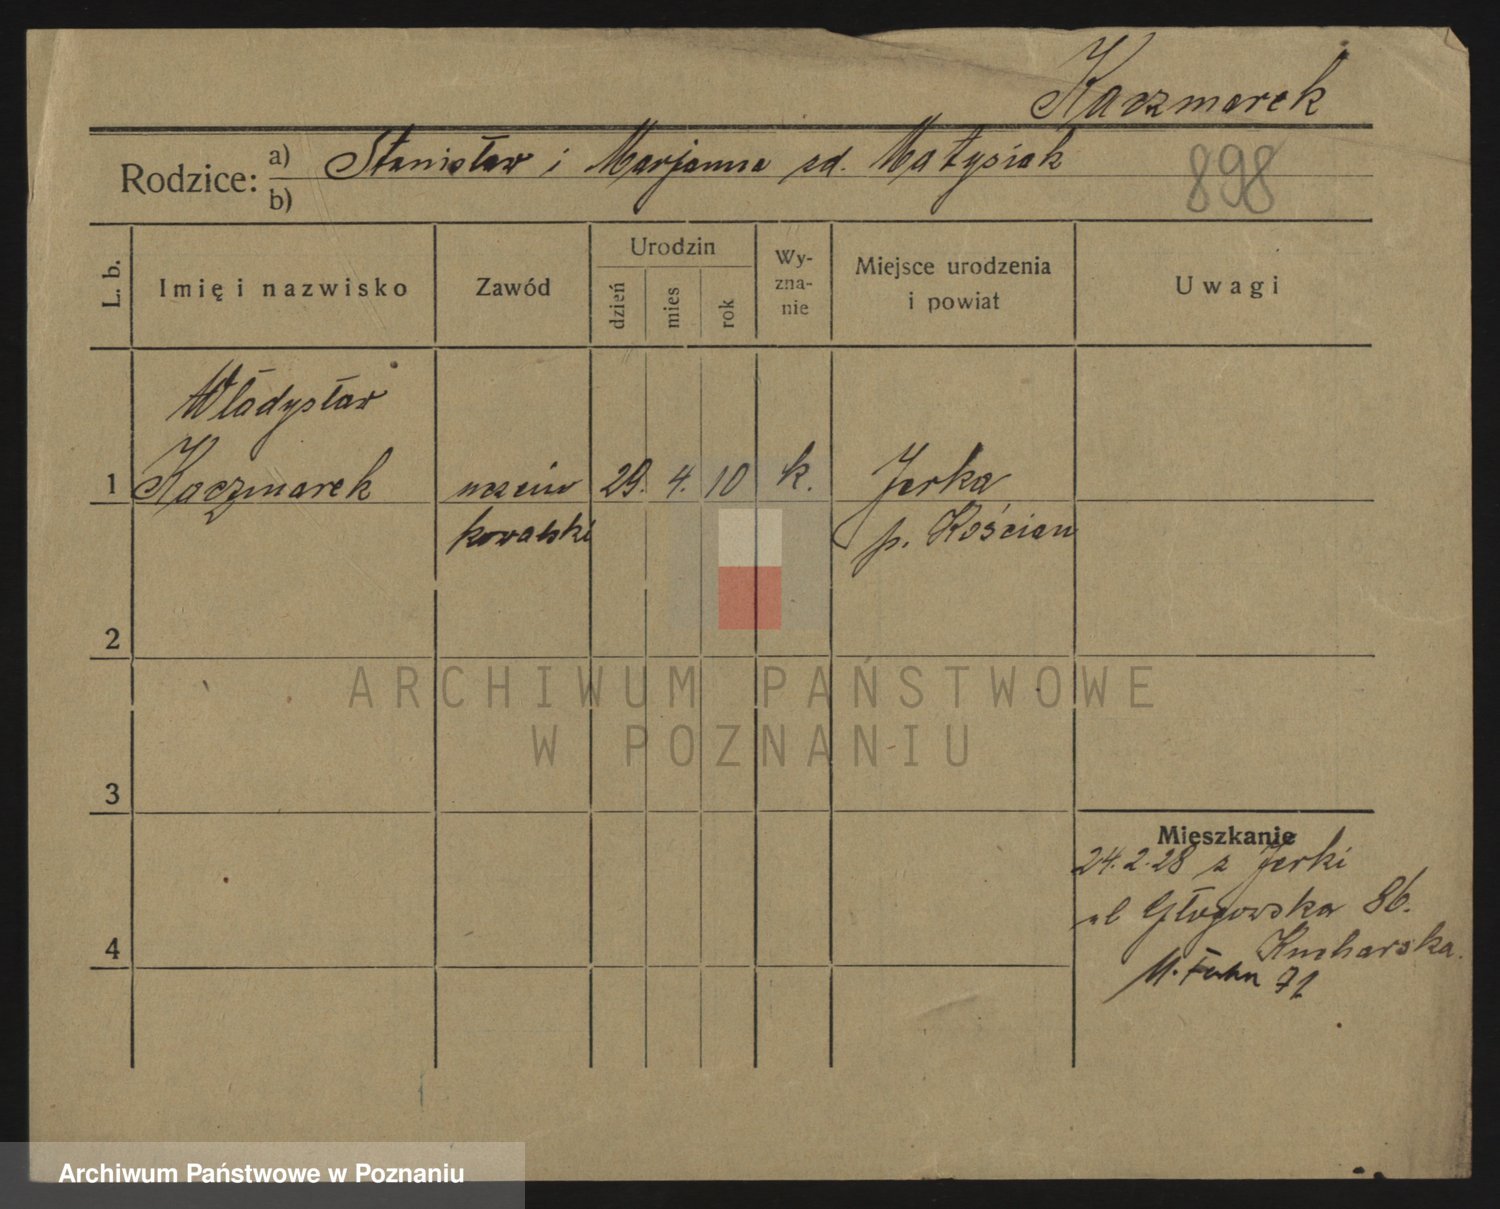 Kaczmarek
Rodzice: a) Stanisław i Marjanna zd. Matysiak
b)
898
L. b. Imię i nazwisko Zawód Urodzin dzień mies rok Wy-zna-nie Miejsce urodzenia i powiat Uwagi
Władysław
1 Kaczmarek uczeń 29. 4. 10 k. Jerka
kowalski p. Kościan
2
ARCHIWUM PAŃSTWOWE
W POZNANIU
3
Mieszkanie
24.2.28 z Jerki
ul Głogowska 86.
Kucharska.
4
M. 71
Archiwum Państwowe w Poznaniu